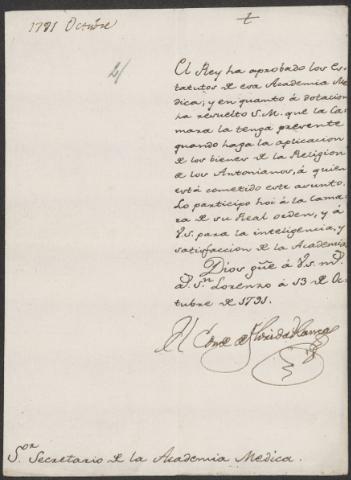 1791 Octubre
El Rey ha aprobado los Es-
tatutos de esa Academia Me-
dica; y en quanto á dotacion
ha resuelto S.M. que la Ca-
mara la tenga presente
quando haga la aplicacion
de los bienes de la Religion
de los Antonianos, á quien
está cometido este asunto.
Lo participo hoi á la Cama-
ra de su Real orden, y á
V.S. para la inteligencia, y
satisfaccion de la Academia.
Dios gūe á V.S. m.s
a.s S.n Lorenzo á 13 de Oc-
tubre de 1791.
El Conde de Floridablanca
S.or Secretario de la Academia Medica.